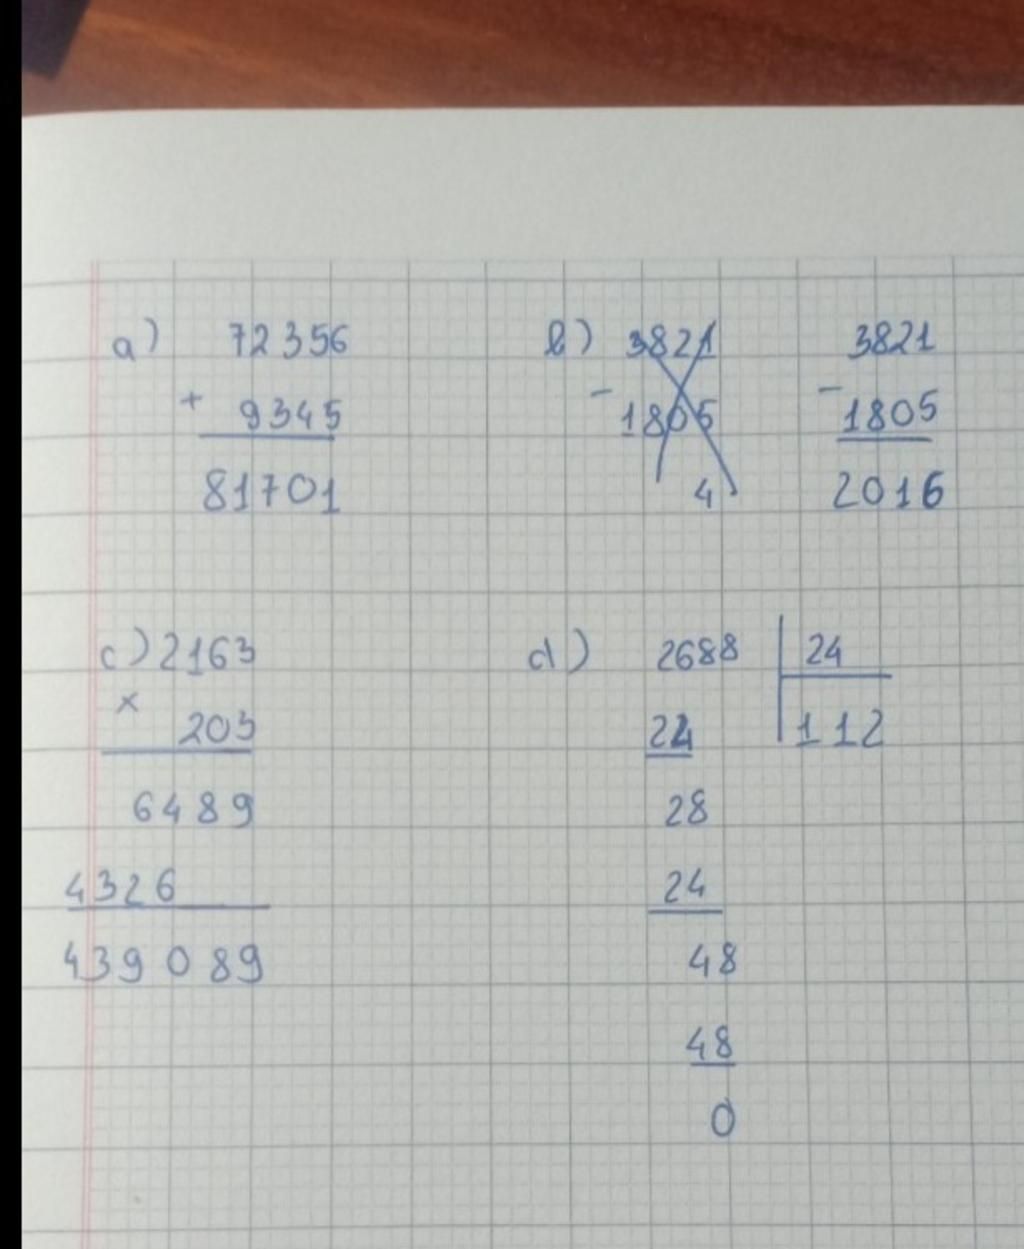 a) 72356
+ 9345
81701
b) 3821
- 1805
4
3821
- 1805
2016
c) 2163
× 203
6489
4326
439089
d) 2688 | 24
24 112
28
24
48
48
0